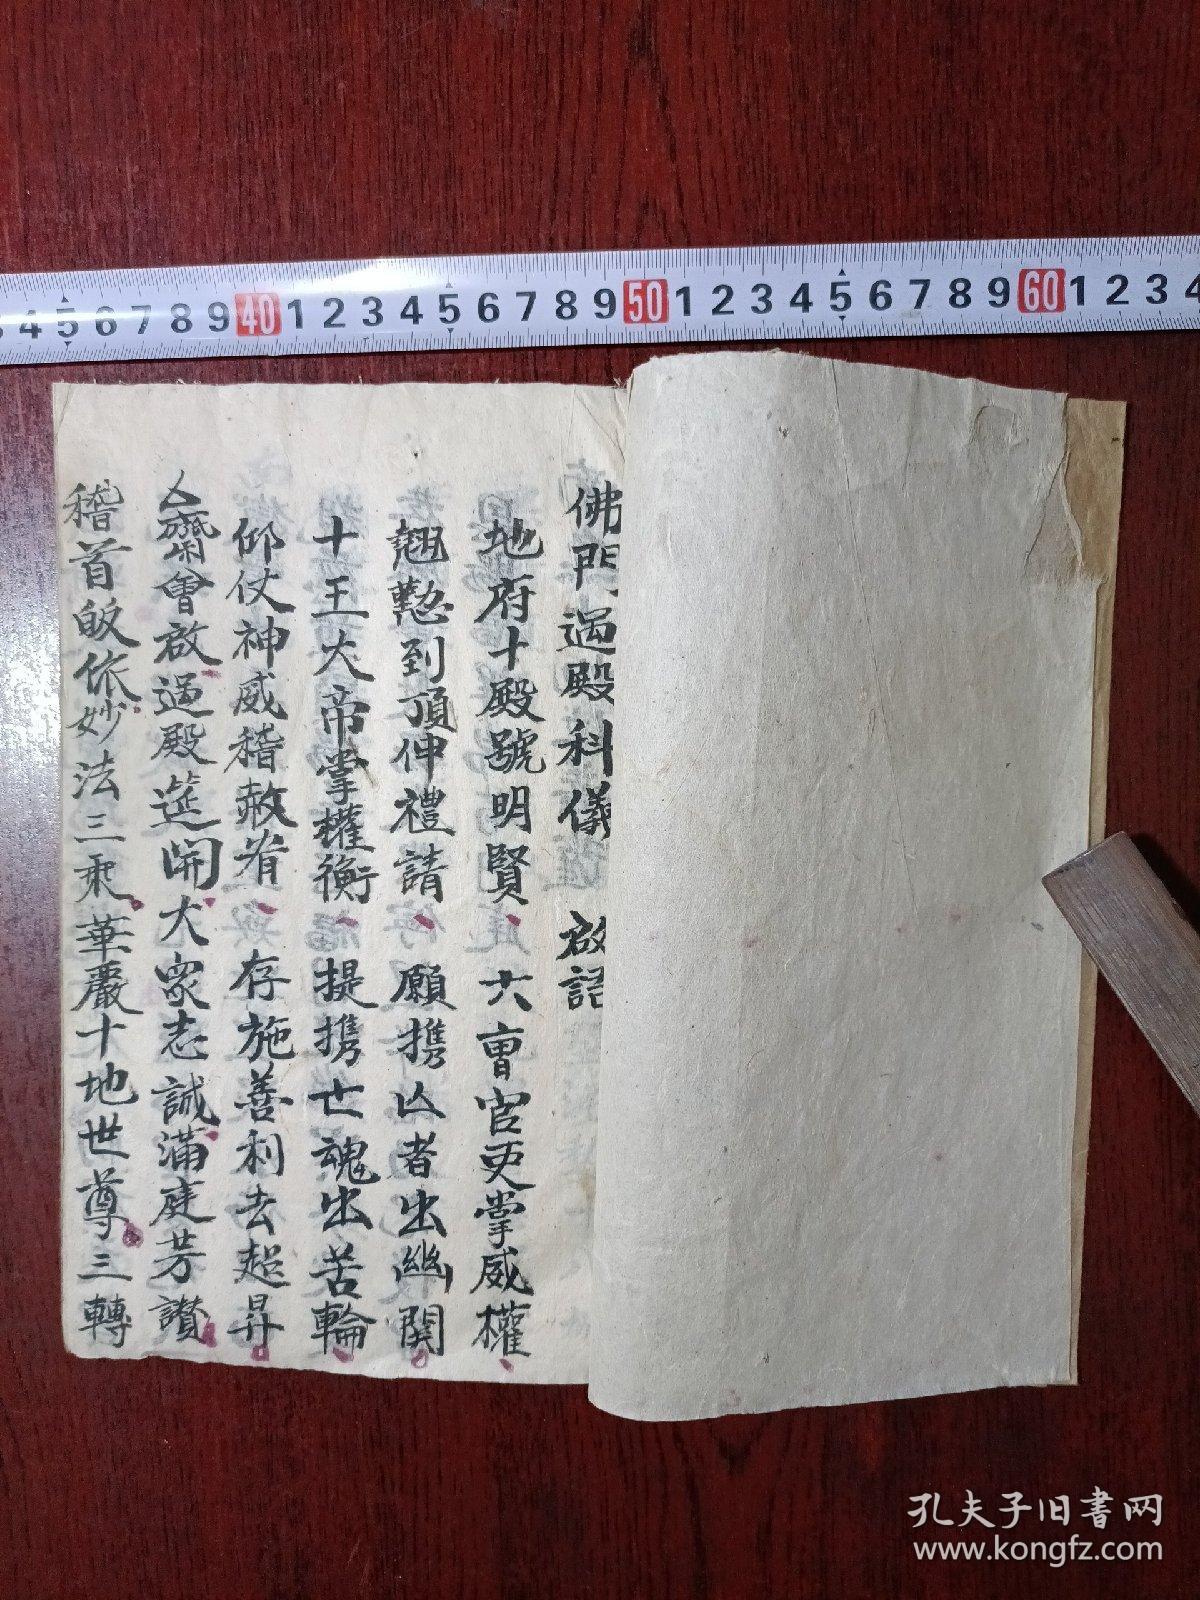 4 5 6 7 8 9 40 1 2 3 4 5 6 7 8 9 50 1 2 3 4 5 6 7 8 9 60 1 2 3 4
佛門過殿科儀 啟語
地府十殿號明賢 六曹官吏掌威權
翹懃到頂伸禮請 願携亾者出幽関
十王大帝掌權衡 提携亡魂出苦輪
仰仗神威稽赦宥 存施善利去超昇
齋會啟過殿筵開大眾志誠滿庭芳讃
稽首皈依妙法三乘華嚴十地世尊三轉
孔夫子旧書网
www.kongfz.com